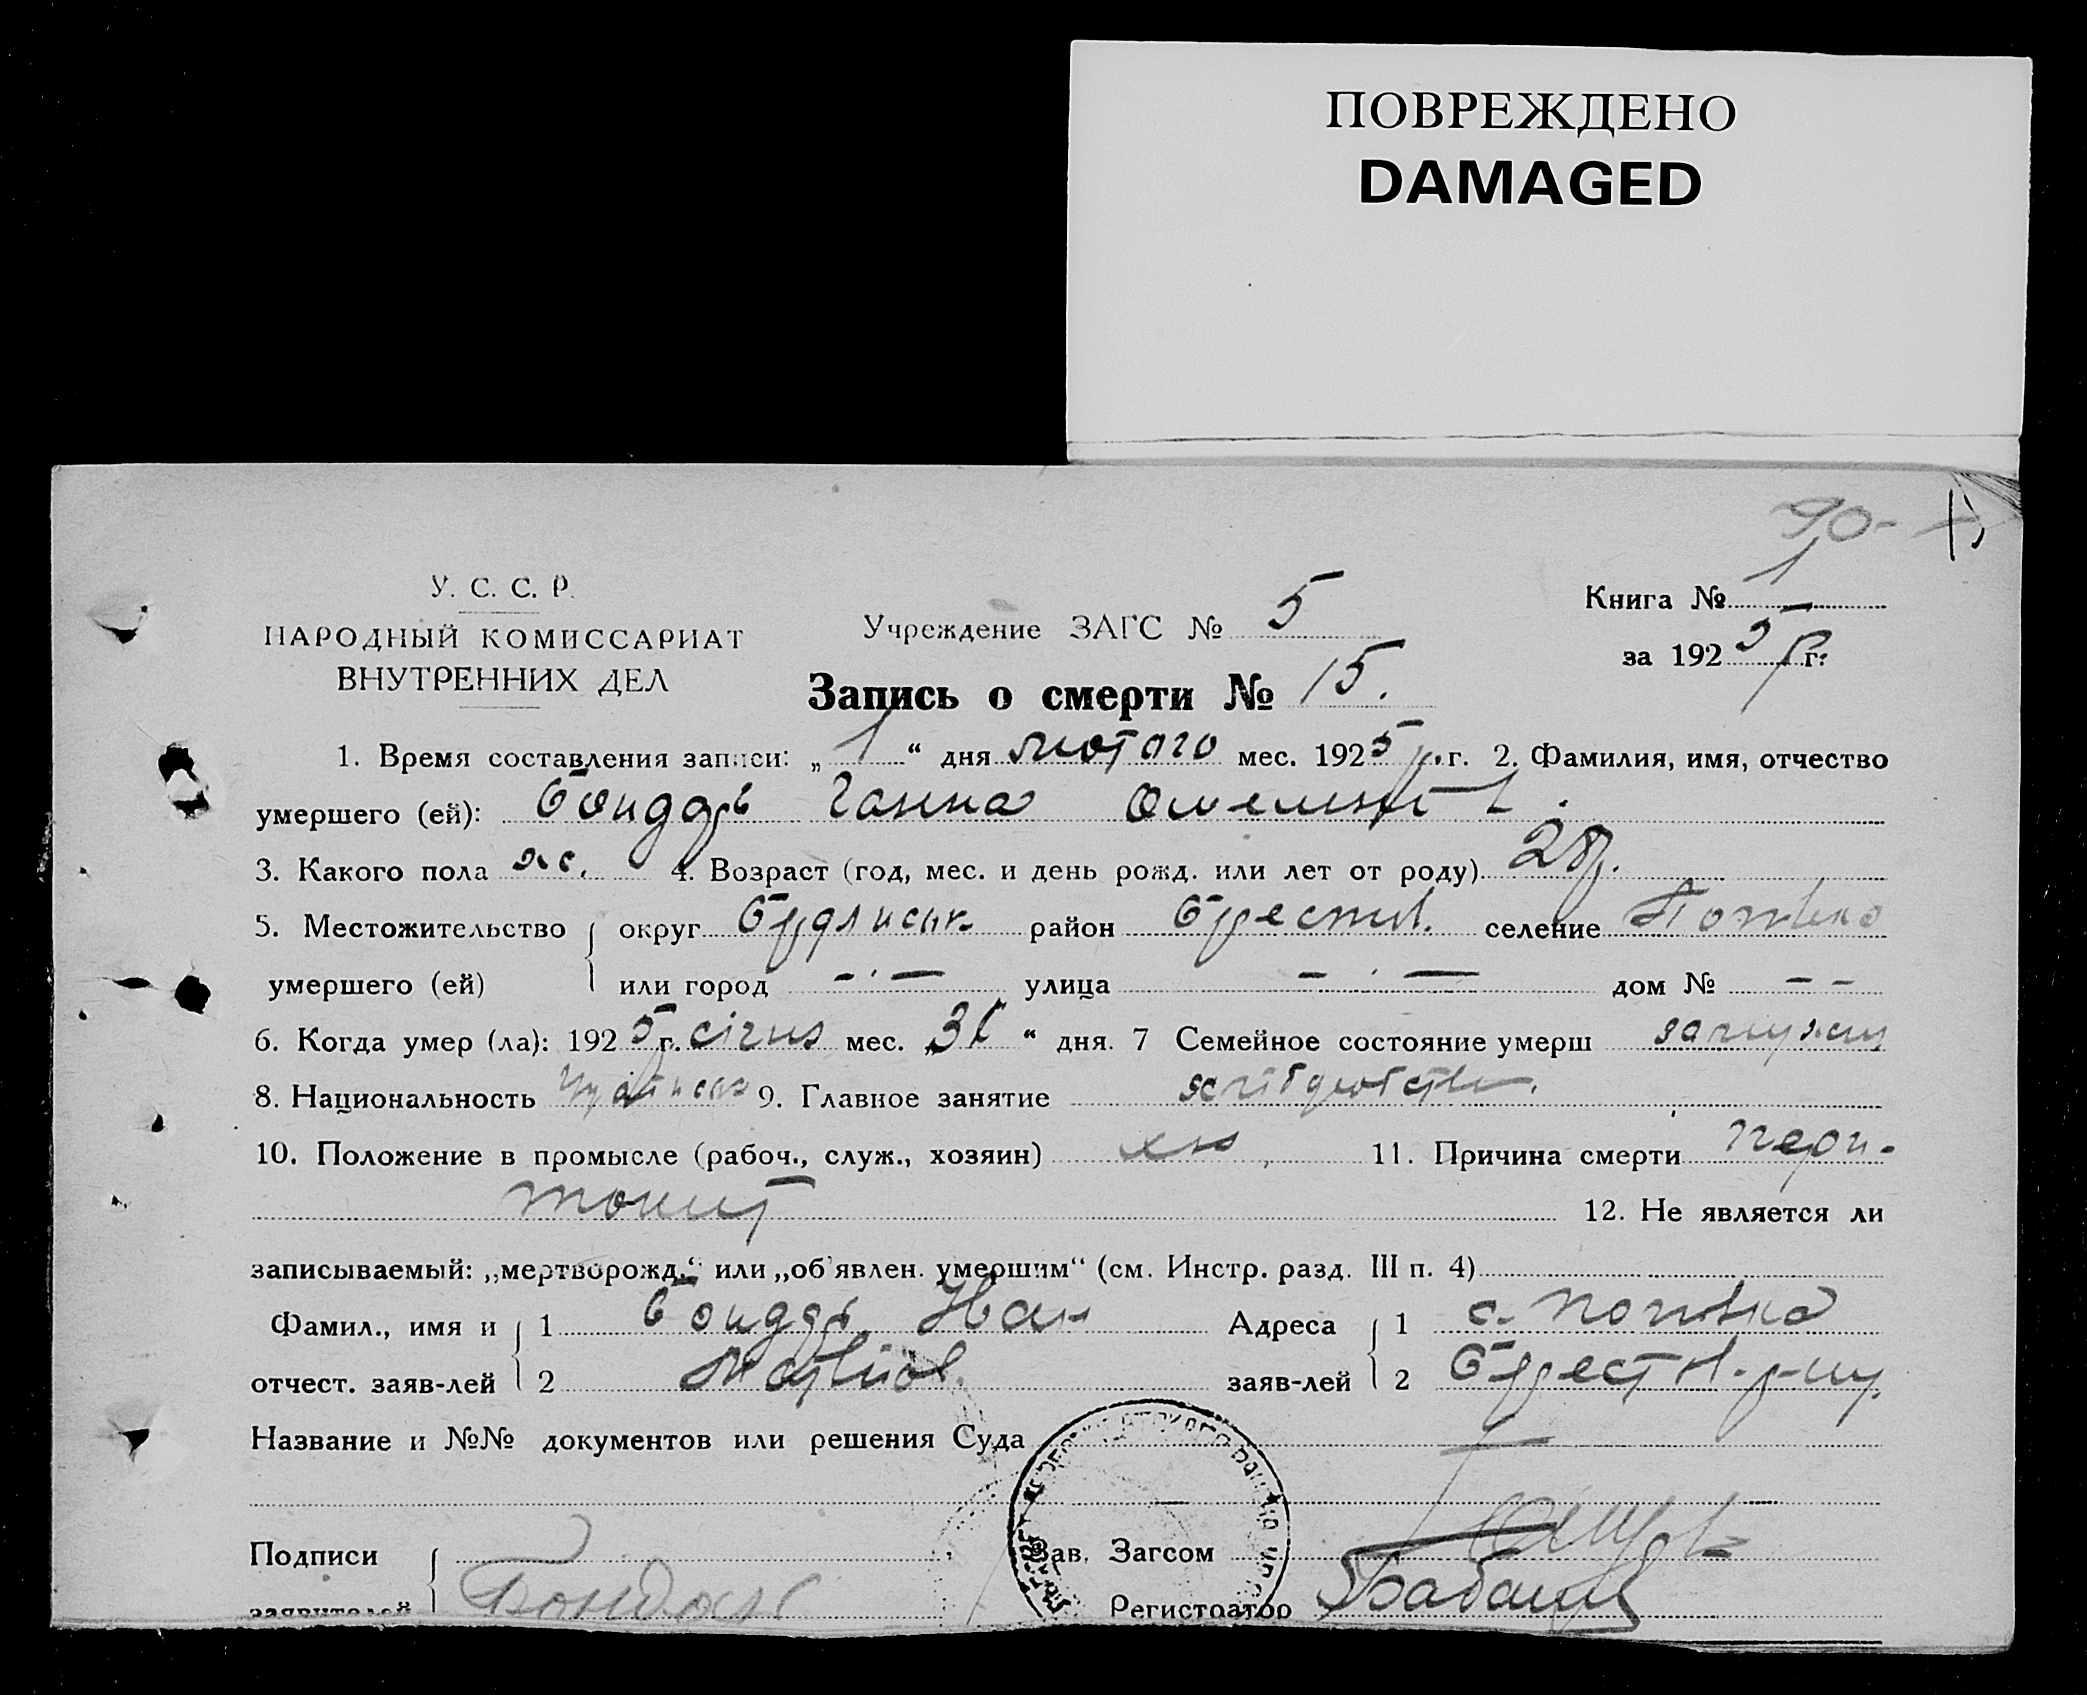 ПОВРЕЖДЕНО
DAMAGED
90-
У. С. С. Р.
НАРОДНЫЙ КОМИССАРИАТ
ВНУТРЕННИХ ДЕЛ
Учреждение ЗАГС № 5
Книга № 1
за 1925 р г.
Запись о смерти № 15.
1. Время составления записи: „1“ дня лютого мес. 1925 р. г. 2. Фамилия, имя, отчество
умершего (ей): Бондарь Ганна Омелянів.
3. Какого пола ж. 4. Возраст (год, мес. и день рожд. или лет от роду) 28р.
5. Местожительство округ район селение
умершего (ей) или город - . — улица - . — дом № - -
6. Когда умер (ла): 1925 г. січня мес. „31“ дня. 7 Семейное состояние умерш замужем
8. Национальность 9. Главное занятие
10. Положение в промысле (рабоч., служ., хозяин) 11. Причина смерти пери-
тоніт 12. Не является ли
записываемый: „мертворожд.“ или „об'явлен. умершим“ (см. Инстр. разд. III п. 4)
Фамил., имя и 1 Бондарь Иван Адреса 1 с.
отчест. заяв-лей 2 заяв-лей 2
Название и №№ документов или решения Суда
Подписи Зав. Загсом
заявителей Бондарь Регистратор